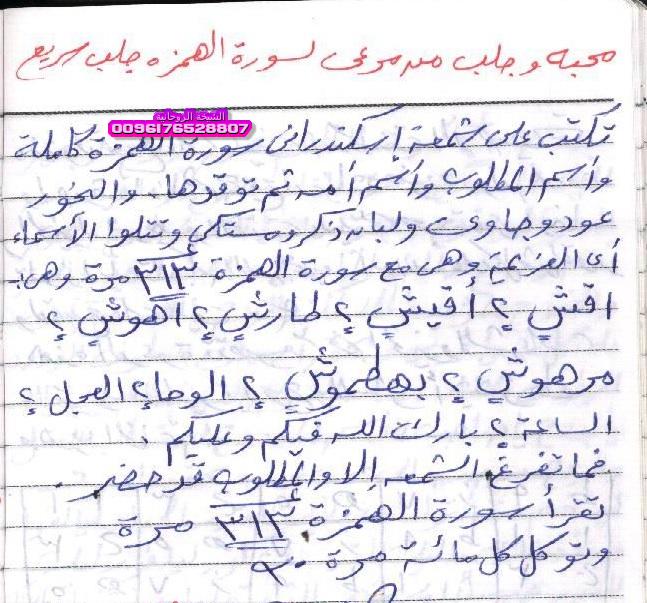 محبه وجلب من مرعى لسورة الهمزه جلب سريع
الشيخة الروحانية
0096176528807
تكتب على شمعة إسكندرانى سورة الهمزة كاملة
واسم المطلوب واسم أمه ثم توقدها. والبخور
عود وجاوى ولبان ذكر ومستكى وتتلوا الأسماء
أى العزيمة وهى مع سورة الهمزة ٣١٣ مرة وهى:
اقشٍ ٢ أقيشٍ ٢ طارشٍ ٢ أهوشٍ ٢
مرهوشٍ ٢ بهطموشٍ ٢ الوحا ٢ العجل ٢
الساعة ٢ بارك الله فيكم وعليكم .
فما تفرغ الشمعه إلا والمطلوب قد حضر .
تقرأ سورة الهمزة ٣١٣ مرة
وتوكل كل مائة مرة